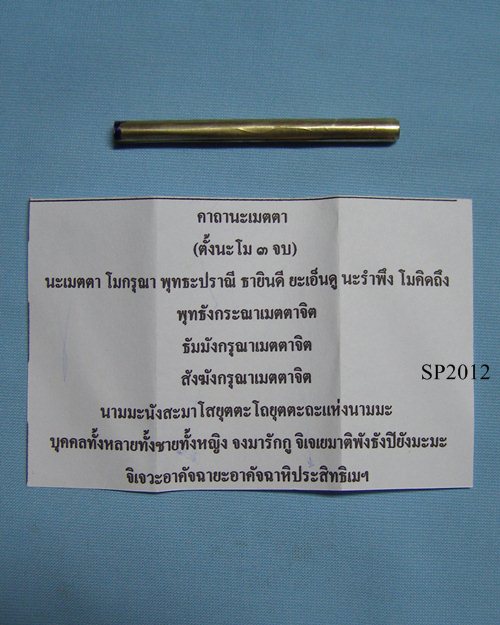 คาถานะเมตตา
(ตั้งนะโม ๓ จบ)
นะเมตตา โมกรุณา พุทธะปราณี ธายินดี ยะเอ็นดู นะรำพึง โมคิดถึง
พุทธังกระณาเมตตาจิต
ธัมมังกรุณาเมตตาจิต
สังฆังกรุณาเมตตาจิต
SP2012
นามมะนังสะมาโสยุตตะโถยุตตะถะแห่งนามมะ
บุคคลทั้งหลายทั้งชายทั้งหญิง จงมารักกู จิเจเยมาติพังธังปิยังมะมะ
จิเจวะอาคัจฉายะอาคัจฉาหิประสิทธิเมฯ